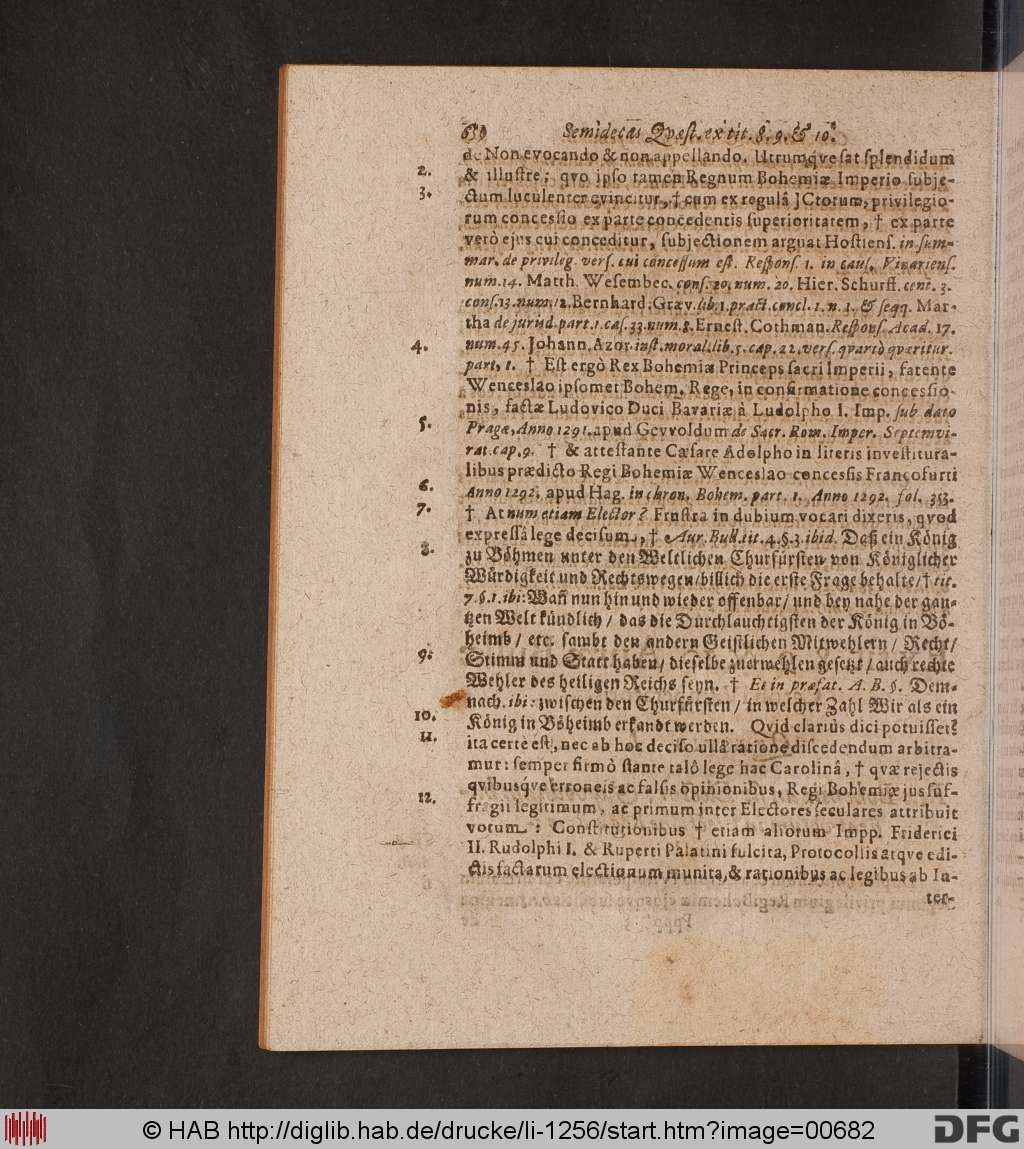 Semidecas Qvæst. ex tit. 8. 9. & 10.
de Non evocando & non appellando. Utrumqve sat splendidum
2. & illustre; qvo ipso tamen Regnum Bohemiæ Imperio subje-
3. ctum luculenter evincitur, † cum ex regulâ JCtorum, privilegio-
rum concessio ex parte concedentis superioritatem, † ex parte
verò ejus cui conceditur, subjectionem arguat Hostiens. in sum-
mar. de privileg. vers. cui concessum est. Respons. 1. in caus. Vivariens.
num. 14. Matth. Wesembec. cons. 20. num. 20. Hier. Schurff. cent. 3.
cons. 13. num. 12. Bernhard. Græv. lib. 1. pract. concl. 1. n. 1. & seqq. Mar-
tha de jurisd. part. 1. cas. 33. num. 8. Ernest. Cothman. Respons. Acad. 17.
4. num. 45. Johann. Azor. inst. moral. lib. 5. cap. 22. vers. qvartò qværitur.
part. 1. † Est ergò Rex Bohemiæ Princeps sacri Imperii, fatente
Wenceslao ipsomet Bohem. Rege, in confirmatione concessio-
nis, factæ Ludovico Duci Bavariæ à Ludolpho I. Imp. sub dato
5. Pragæ, Anno 1291. apud Gevvoldum de Sacr. Rom. Imper. Septemvi-
rat. cap. 9. † & attestante Cæsare Adolpho in literis investitura-
libus prædicto Regi Bohemiæ Wenceslao concessis Francofurti
6. Anno 1292. apud Hag. in chron. Bohem. part. 1. Anno 1292. fol. 353.
7. † At num etiam Elector? Frustra in dubium vocari dixeris, qvod
expressâ lege decisum, † Aur. Bull. tit. 4. §. 3. ibid. Daß ein König
8. zu Böhmen unter den Weltlichen Churfürsten von Königlicher
Würdigkeit und Rechtswegen / billich die erste Frage behalte / † tit.
7. §. 1. ibi: Wañ nun hin und wieder offenbar / und bey nahe der gan-
tzen Welt kündlich / das die Durchlauchtigsten der König in Bö-
heimb / etc. sambt den andern Geistlichen Mitwehlern / Recht /
9. Stimm und Statt haben / dieselbe zuerwehlen gesetzt / auch rechte
Wehler des heiligen Reichs seyn. † Et in præfat. A. B. §. Dem-
nach. ibi: zwischen den Churfürsten / in welcher Zahl Wir als ein
10. König in Böheimb erkandt werden. Qvid clariùs dici potuisset?
11. ita certe est, nec ab hoc deciso ullâ ratione discedendum arbitra-
mur: semper firmò stante talô lege hac Carolinâ, † qvæ rejectis
qvibusqve erroneis ac falsis opinionibus, Regi Bohemiæ jus suf-
12. fragii legitimum, ac primum inter Electores seculares attribuit
votum: Constitutionibus † etiam aliorum Impp. Friderici
II. Rudolphi I. & Ruperti Palatini fulcita, Protocollis atqve edi-
ctis factarum electionum munita, & rationibus ac legibus ab In-
ter-
© HAB http://diglib.hab.de/drucke/li-1256/start.htm?image=00682
DFG